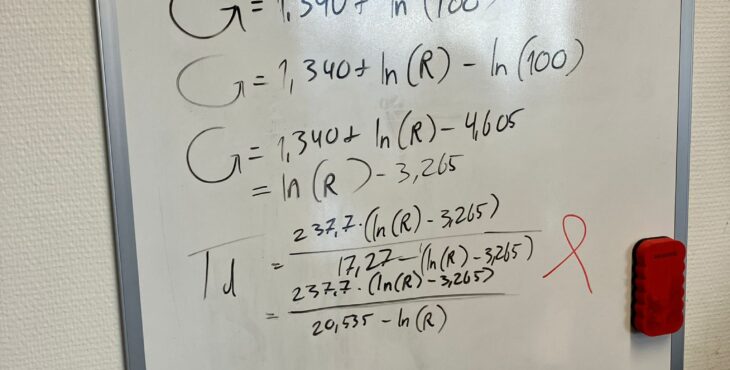 G = 1,340 + ln(100)
G = 1,340 + ln(R) - ln(100)
G = 1,340 + ln(R) - 4,605
= ln(R) - 3,265
Td = 237,7·(ln(R) - 3,265) / 17,27 - (ln(R) - 3,265)
= 237,7·(ln(R) - 3,265) / 20,535 - ln(R)